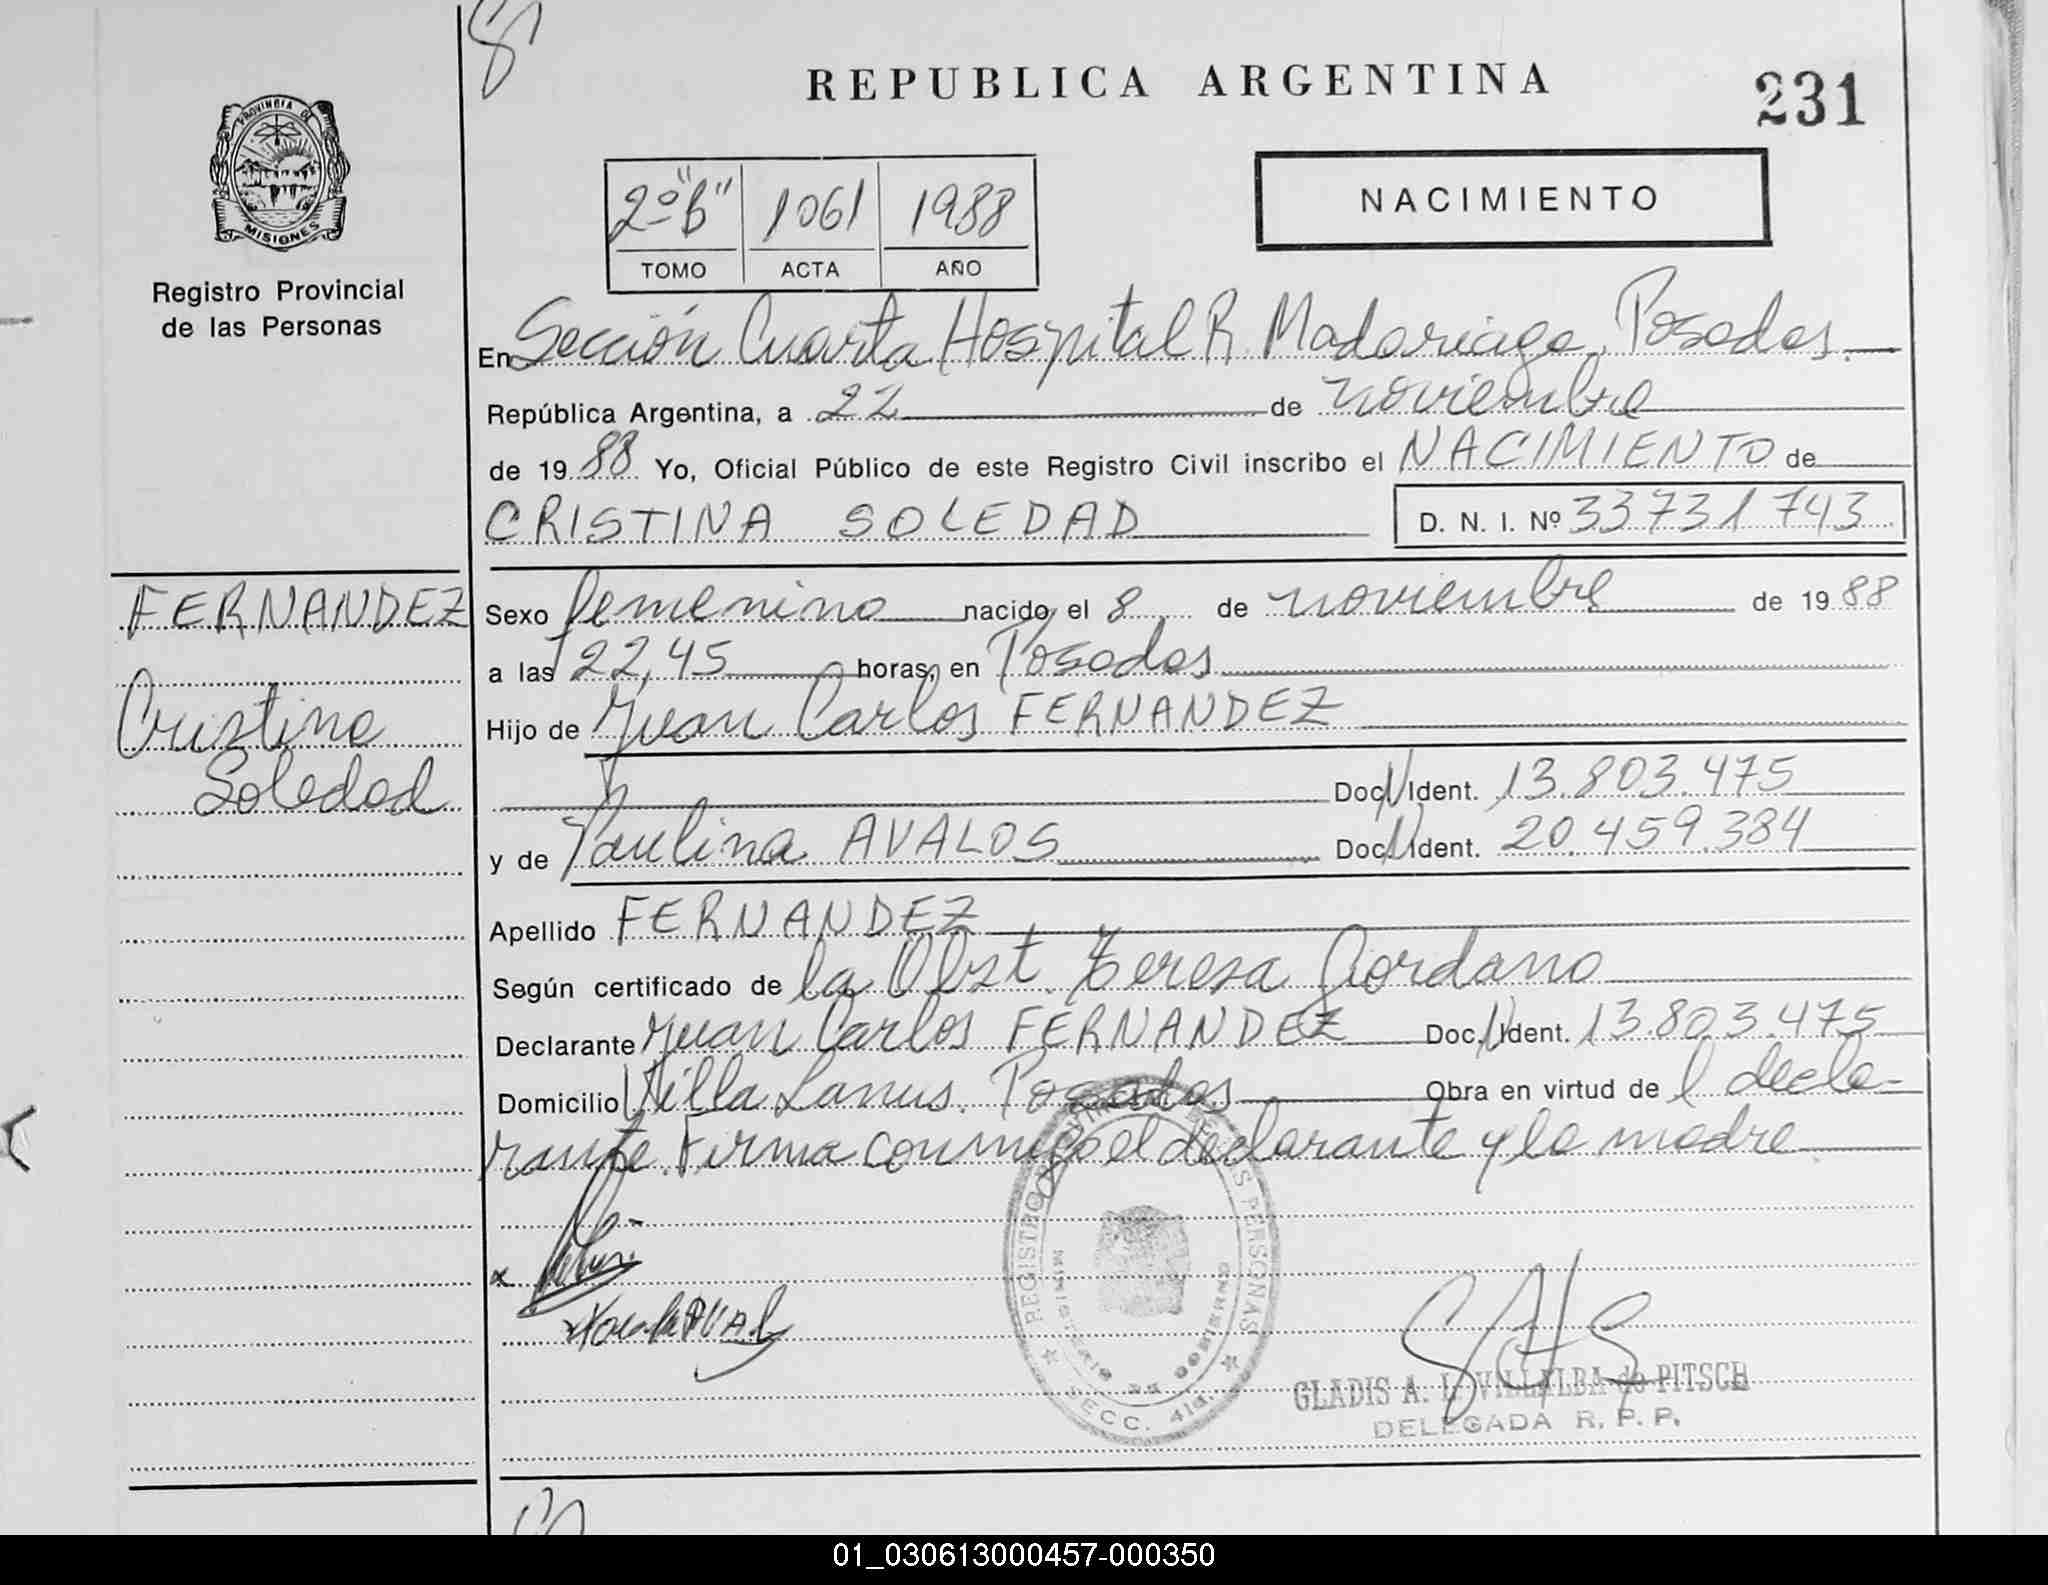 REPUBLICA ARGENTINA
231
PROVINCIA DE
MISIONES
Registro Provincial
de las Personas
2º "b" 1061 1988
TOMO ACTA AÑO
NACIMIENTO
En Sección Cuarta Hospital R. Madariaga, Posadas.
República Argentina, a 22 de noviembre
de 1988 Yo, Oficial Público de este Registro Civil inscribo el NACIMIENTO de
CRISTINA SOLEDAD D. N. I. Nº 33731743
FERNANDEZ
Cristina
Soledad
Sexo femenino nacido el 8 de noviembre de 1988
a las 22,45 horas, en Posadas
Hijo de Juan Carlos FERNANDEZ
Doc. Ident. 13.803.475
y de Paulina AVALOS Doc. Ident. 20.459.384
Apellido FERNANDEZ
Según certificado de la Obst. Teresa Giordano
Declarante Juan Carlos FERNANDEZ Doc. Ident. 13.803.475
Domicilio Villa Lanus. Posadas Obra en virtud de l decla-
rante. Firma conmigo el declarante y la madre
REGISTRO PROVINCIAL DE LAS PERSONAS
MINISTERIO DE GOBIERNO
SECC. 4ta.
GLADIS A. L. VILLALBA de PITSCH
DELEGADA R. P. P.
01_030613000457-000350